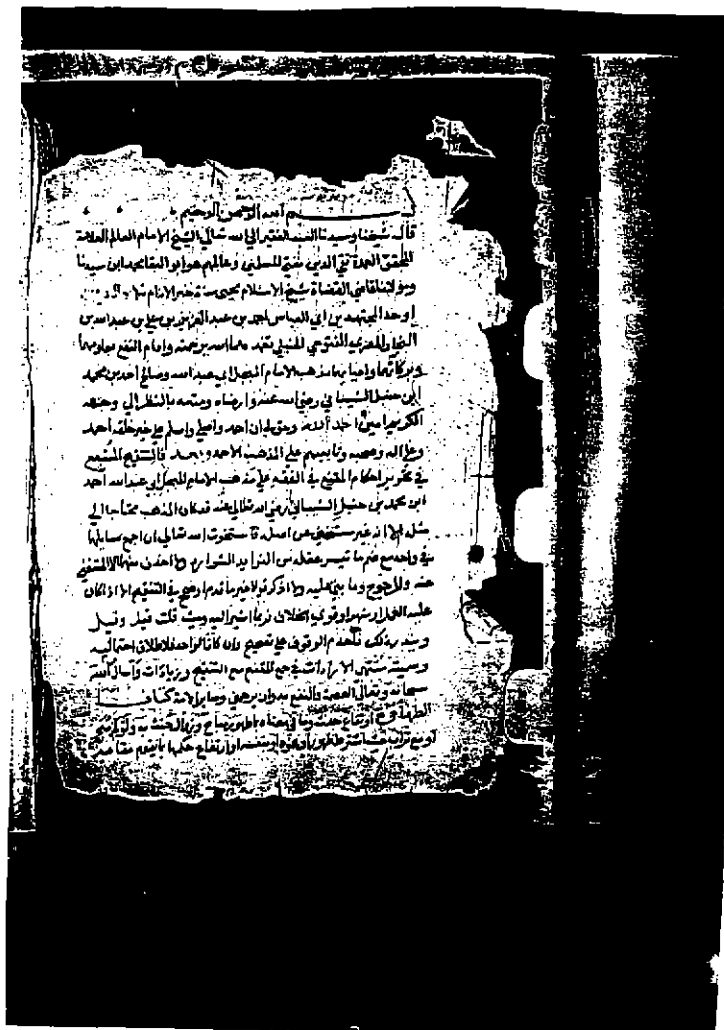 بسم الله الرحمن الرحيم
قال شيخنا وسيدنا العبد الفقير الى الله تعالى الشيخ الامام العالم العلامة
المحقق العمدة تقي الدين مفتي المسلمين وعالمهم هو ابو البقا محمد ابن سيدنا
ومولانا قاضي القضاة شيخ الاسلام محيي سنة خير الانام
اوحد المجتهدين ابي العباس احمد بن عبد العزيز بن علي بن عبد الله بن
النجار الفتوحي الحنبلي تغمدهما الله برحمته وادام النفع بعلومهما
وبركاتهما واحيا بهما مذهب الامام المبجل ابي عبد الله وصالح احمد بن محمد
ابن حنبل الشيباني رضي الله عنه وارضاه ومتعه بالنظر الى وجهه
الكريم امين احمد الله وحق لي ان احمد واصلي واسلم على خير خلقه احمد
وعلى اله وصحبه وتابعيهم على المذهب الاحمد وبعد فالتنقيح المشبع
في تحرير احكام المقنع في الفقه على مذهب الامام المبجل ابي عبد الله احمد
ابن محمد بن حنبل الشيباني رضي الله تعالى عنه قد كان المذهب محتاجا الى
مثله الا انه غير مستغن عن اصله فاستخرت الله تعالى ان اجمع مسايلهما
في واحد مع ضم ما تيسر عقله من الفوايد الشوارد ولا احذف منهما الا المستغنى
عنه والمرجوح وما بني عليه ولا اذكر قولا غير ما قدم او صحح في التنقيح الا اذا كان
عليه العمل او شهر او قوي الخلاف فربما اشير اليه وحيث قلت قيل وقيل
ويندر ذلك فلعدم الوقوف على تصحيح وان كانا لواحد فلاطلاق احتماليه
وسميته منتهى الارادات في جمع المقنع مع التنقيح وزيادات واسال الله
سبحانه وتعالى العصمة والنفع به وان يرحمني وساير الامة كتاب
الطهارة ارتفاع حدث وما في معناه بماء طهور مباح وزوال خبث به ولو لم يبح
او مع تراب طهور او نحوه او بنفسه او ارتفاع حكمهما بما يقوم مقامه